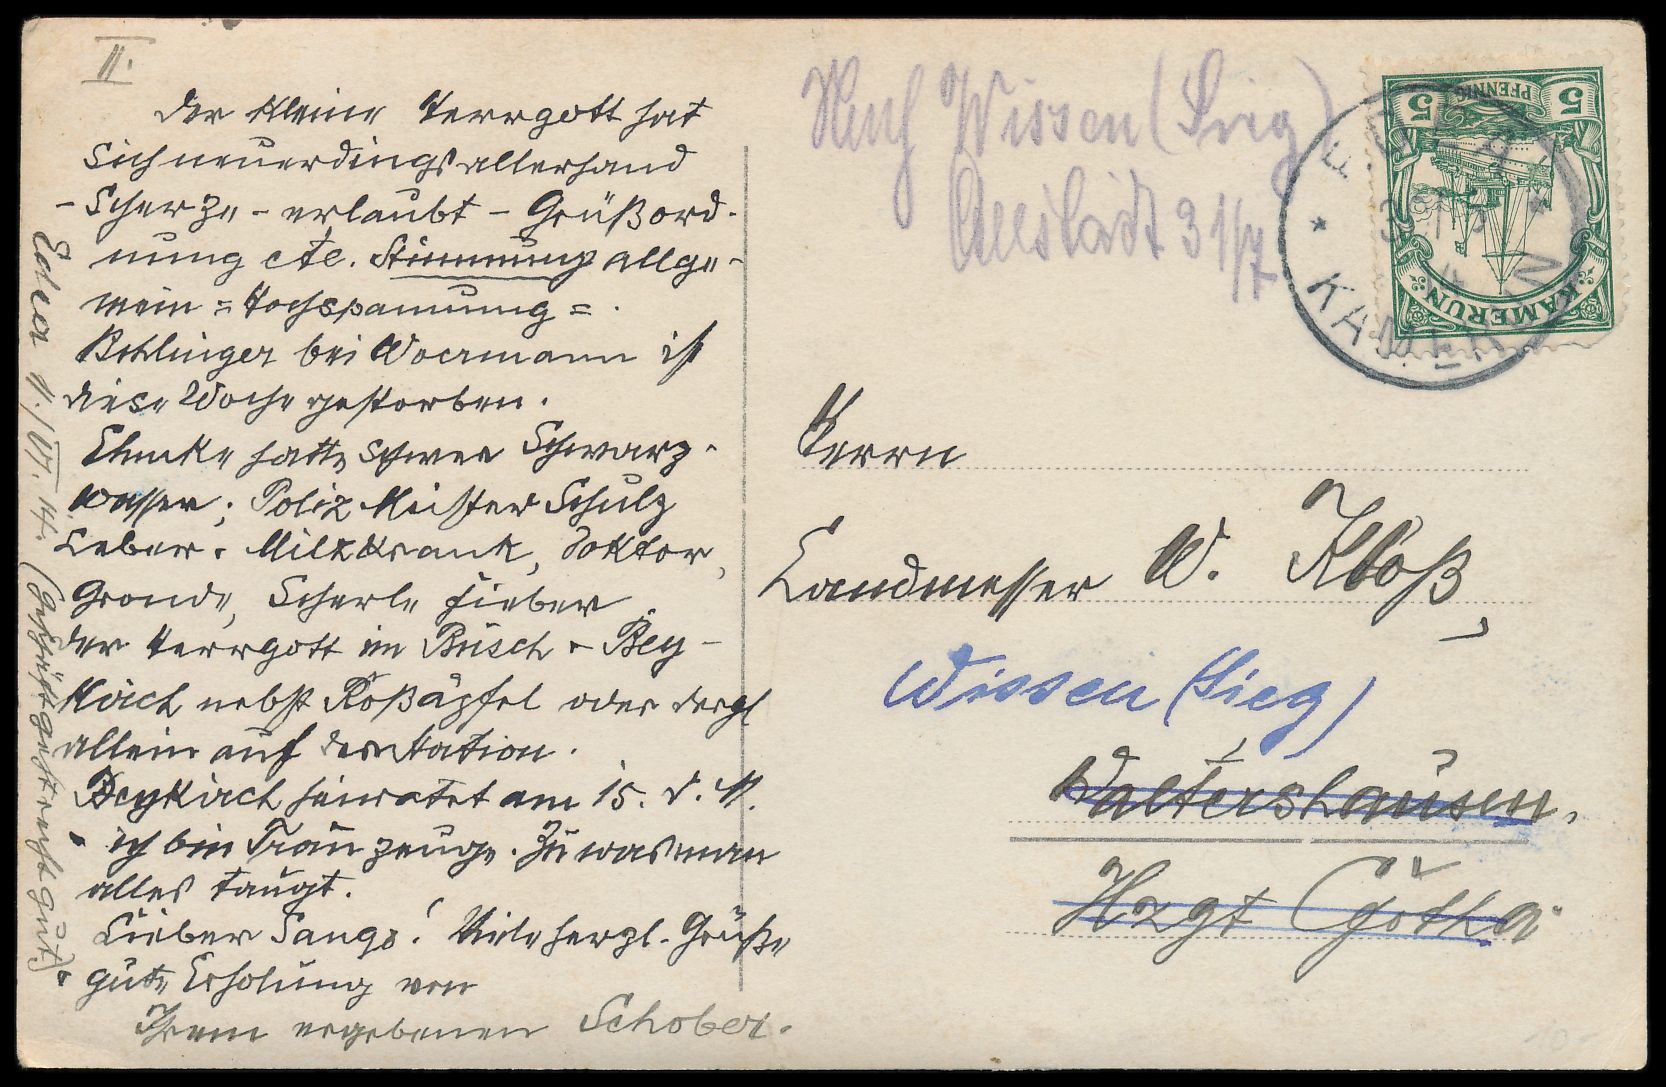 II.
Der kleine Herrgott hat
sich neuerdings allerhand
- Scherze - erlaubt - Grüßord-
nung etc. Stimmung allge-
mein = Hochspannung =.
Bohlinger bei Woermann ist
diese Woche gestorben.
Ehmke hatte schwer Schwarz-
wasser; Poliz Meister Schulz
Leber- Milzkrank, Doktor,
Gronde, Scherle Fieber
der Herrgott im Busch - Bey-
kirch nebst Roßäpfel oder dergl
allein auf der Station.
Beykirch heiratet am 15. d. M.
- ich bin Trauzeuge. Zu was man
alles taugt.
Lieber Sango! Viele herzl. Grüße
gute Erholung von
Ihrem ergebenen Schober.
Edea 11./VI. 14. (Geschäft geht recht gut)
Wissen (Sieg)
31/7
5 PFENNIG 5
KAMERUN
EDEA
KAMERUN
Herrn
Landmesser W. Kloß,
Wissen (Sieg)
Waltershausen.
Hzgt Gotha